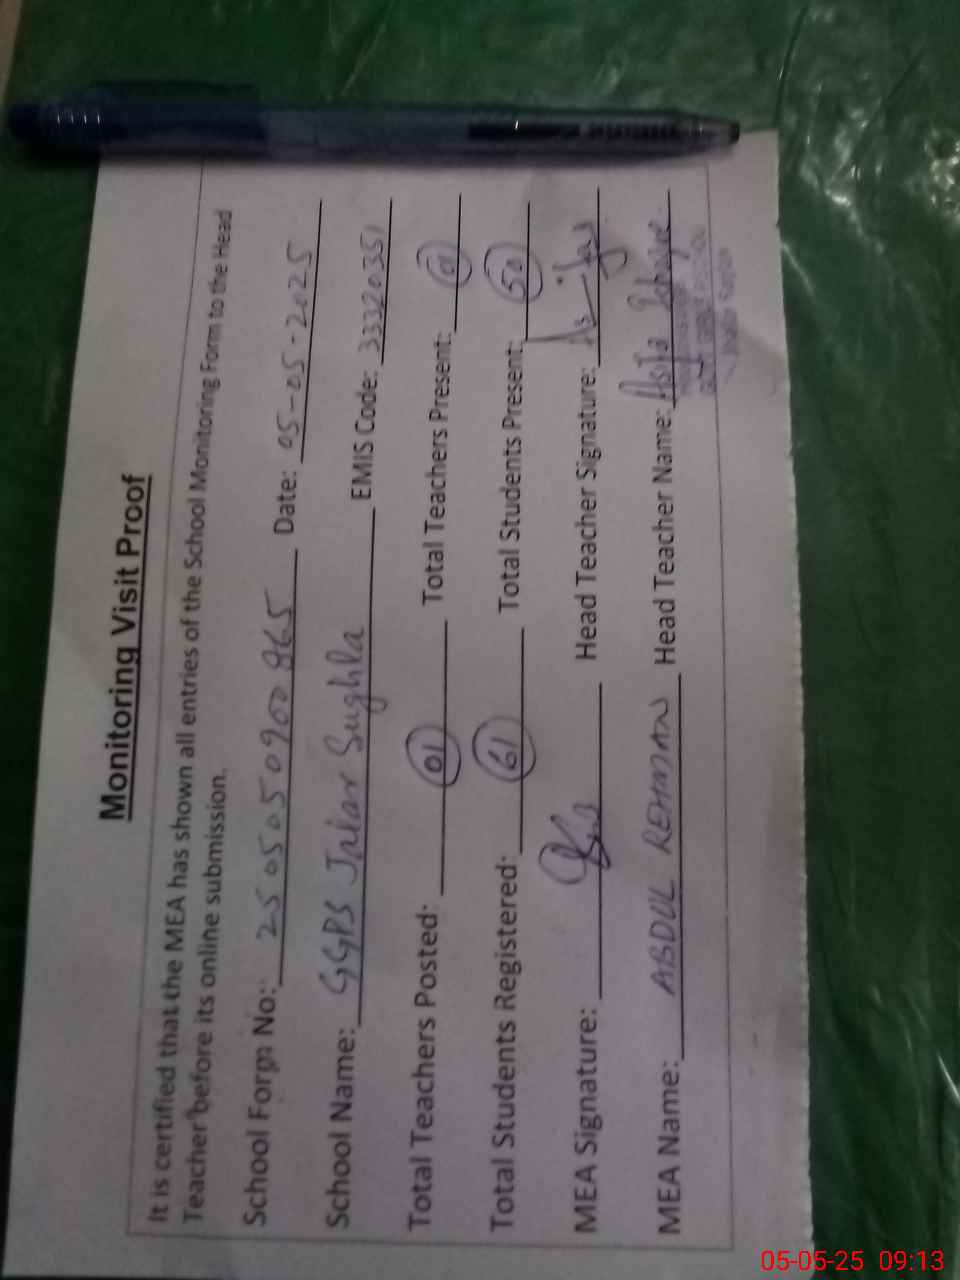 Monitoring Visit Proof
It is certified that the MEA has shown all entries of the School Monitoring Form to the Head
Teacher before its online submission.
School Form No: 2505050900865 Date: 05-05-2025
School Name: GGPS Jalar Sughla EMIS Code: 33320351
Total Teachers Posted: 01 Total Teachers Present: 01
Total Students Registered: 61 Total Students Present: 50
MEA Signature: Head Teacher Signature:
MEA Name: ABDUL REHMAN Head Teacher Name:
05-05-25 09:13